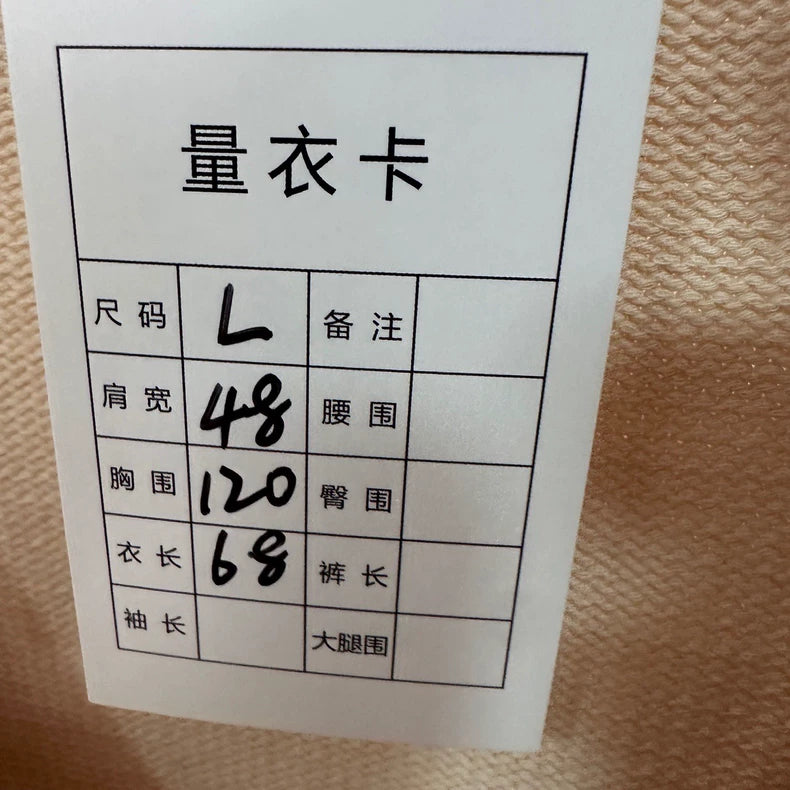 量衣卡
尺码 L 备注
肩宽 48 腰围
胸围 120 臀围
衣长 68 裤长
袖长 大腿围